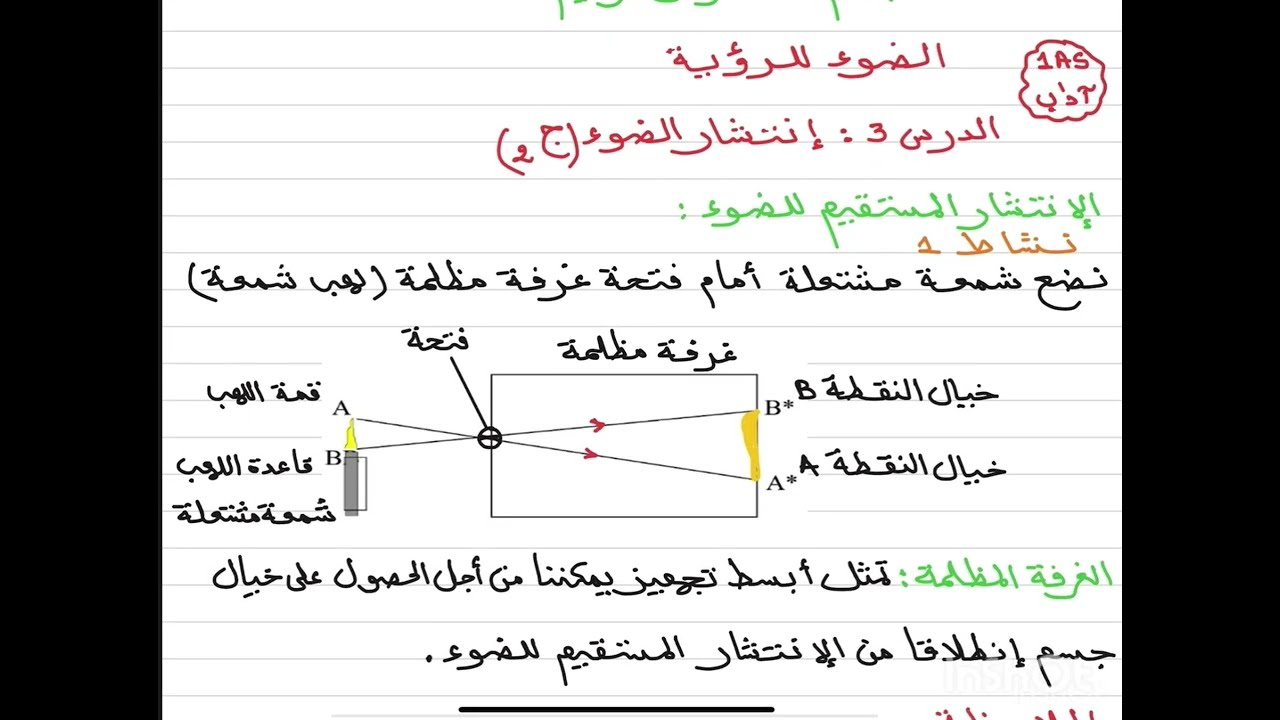 الضوء للرؤية
1AS
آداب
الدرس 3 : إنتشار الضوء (ج 2)
الإنتشار المستقيم للضوء :
نشاط 1
نضع شمعة مشتعلة أمام فتحة غرفة مظلمة (لهب شمعة)
فتحة
غرفة مظلمة
قمة اللهب
A
B*
خيال النقطة B
قاعدة اللهب
B
A*
خيال النقطة A
شمعة مشتعلة
الغرفة المظلمة : تمثل أبسط تجهيز يمكننا من أجل الحصول على خيال
جسم إنطلاقا من الإنتشار المستقيم للضوء .
InshOt